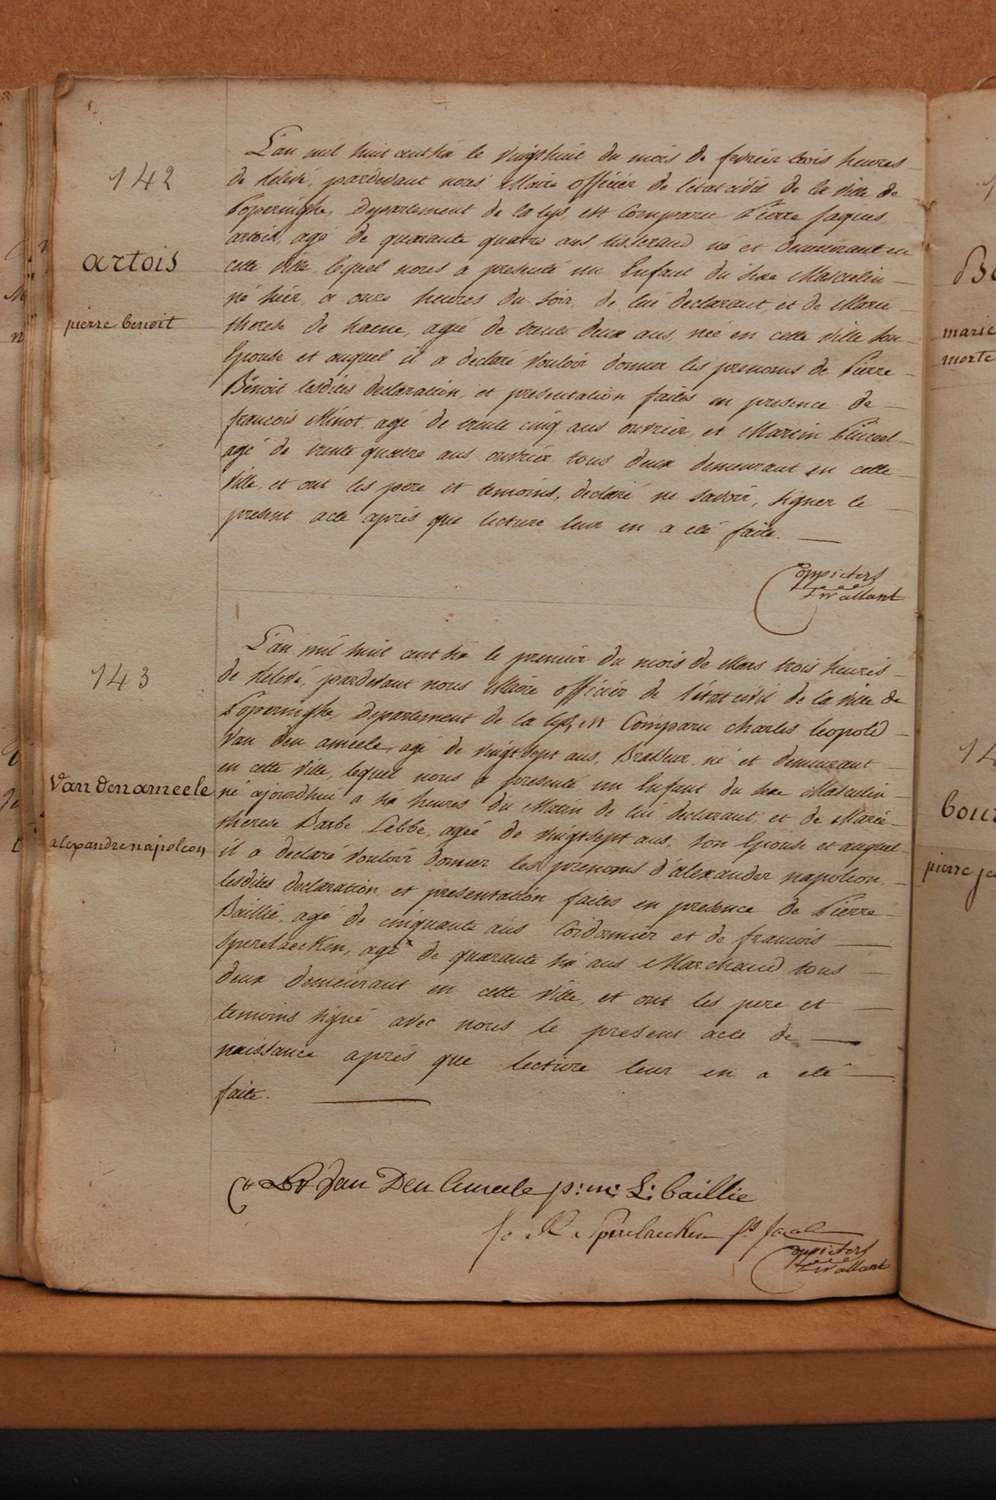 142
artois
pierre benoit
L'an mil huit cent six le vingthuit du mois de fevrier trois heures
de Relevé, pardevant nous Maire officier de l'etat civil de la ville de
Poperinghe, Departement de la lys, est Comparu Pierre Jaques
artois, agé de quarante quatre ans tisserand né et Demeurant en
cette ville lequel nous a presenté un Enfant du sexe Masculin
né hier, a onze heures du soir, de lui declarant, et de Marie
therese de haene, agée de trente deux ans, née en cette ville son
Epouse et auquel il a declaré vouloir donner les prenoms de Pierre
Bénoit lesdites declaration, et presentation faites en presence de
francois Minot, agé de trente cinq ans ouvrier, et Martin
agé de trente quatre ans ouvrier tous deux demeurant en cette
ville, et ont les pere et temoins, declaré ne savoir, signer le
present acte aprés que lecture leur en a eté faite.
oppicters
Wallant
143
Van den ameele
alexandre napoleon
L'an mil huit cent six le premier du mois de Mars trois heures
de Relevé, pardevant nous Maire officier de l'état civil de la ville de
Poperinghe, Departement de la lys, est Comparu Charles leopold
Van den ameele, agé de vingt sept ans, Brasseur, né et demeurant
en cette ville, lequel nous a presenté un Enfant du sexe Masculin
né ajourdhui a six heures du Matin de lui declarant, et de Marie
therese Barbe Lebbe, agée de vingt sept ans, son Epouse et auquel
il a declaré vouloir donner les prenoms d'alexander napoleon
lesdites declaration et presentation faites en presence de Pierre
Baillié, agé de cinquante ans Cordonnier et de francois
Sperelaecken, agé de quarante six ans Marchand tous
deux demeurant en cette ville, et ont les pere et
temoins signé avec nous le present acte de
naissance aprés que lecture leur en a eté
faite.
Van Den Ameele p: m: L: baillie
Sperelaecken
oppicters
Wallant
marie
morte
bour
pierre